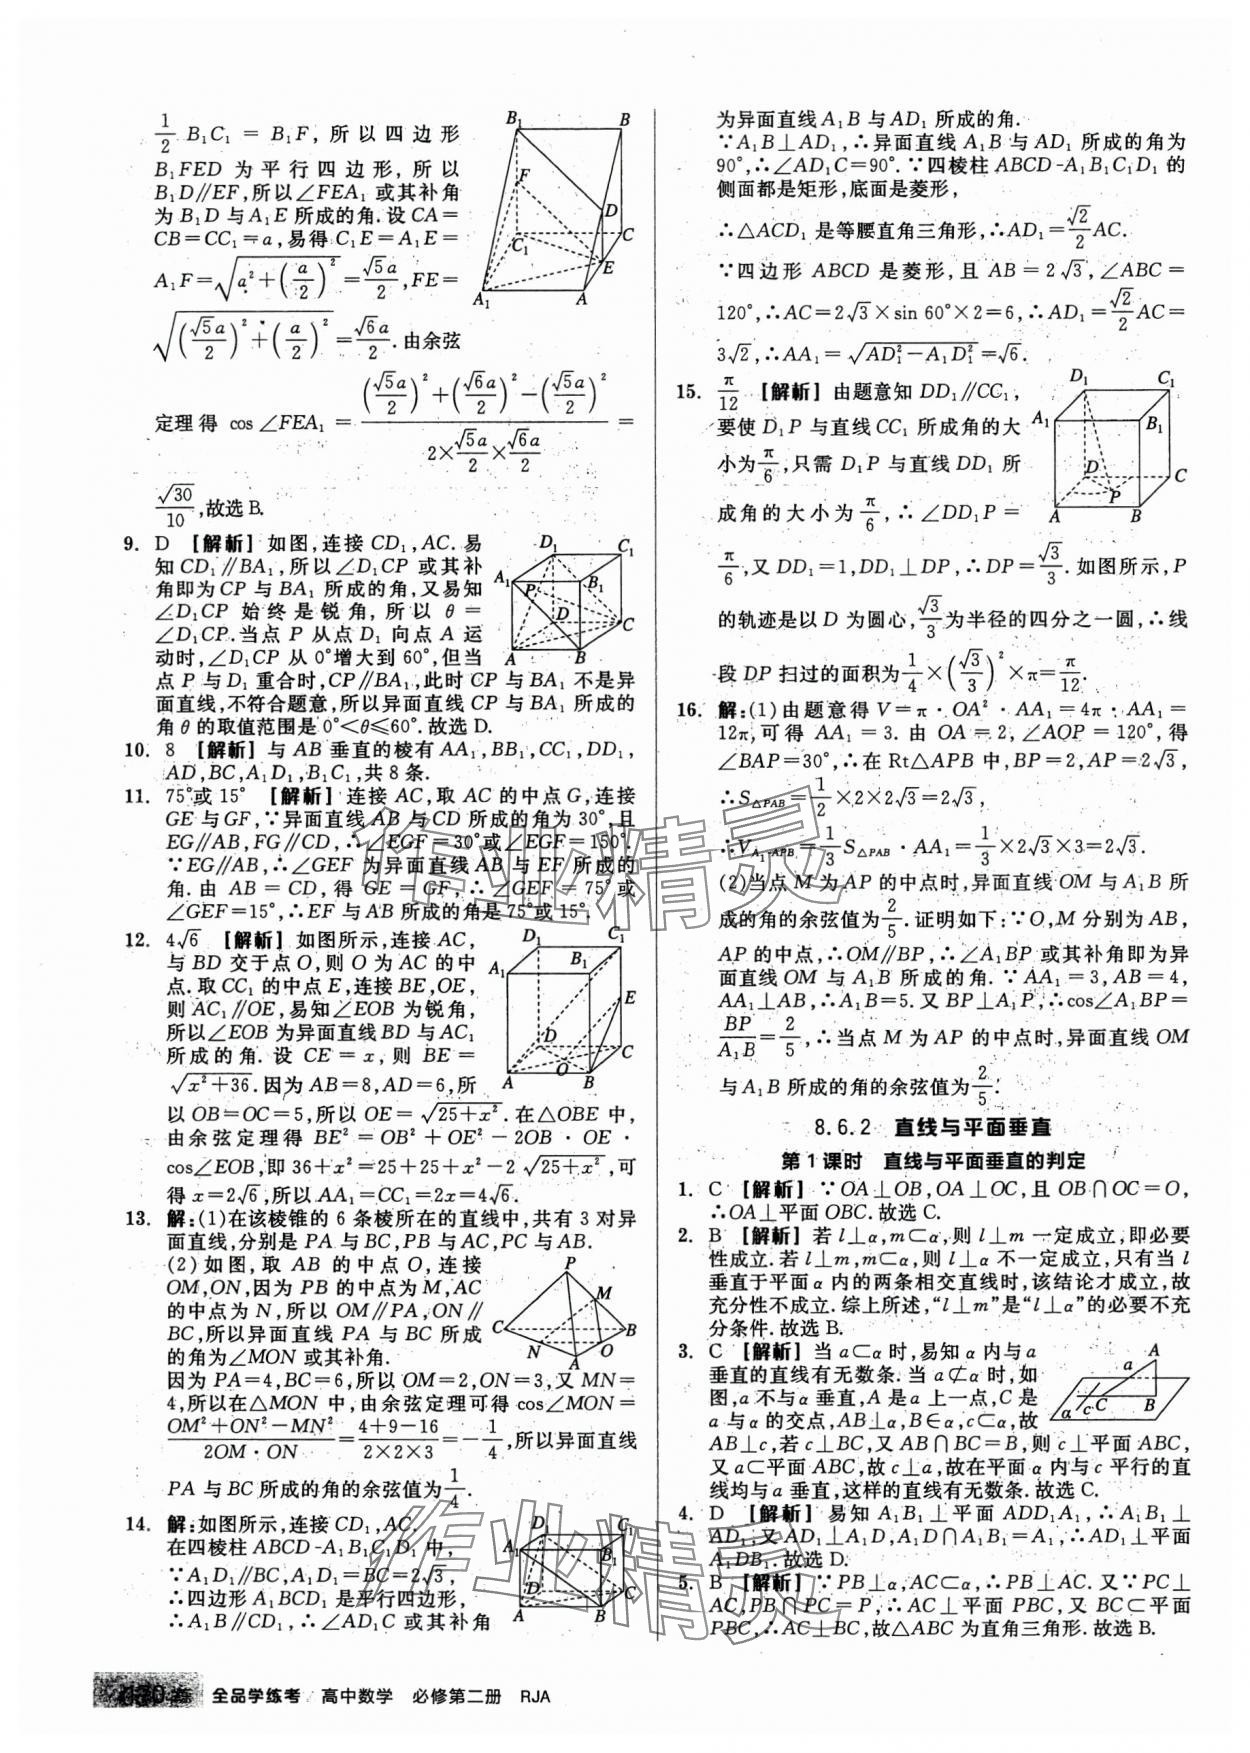 1/2 B₁C₁ = B₁F, 所以四边形
B₁FED 为平行四边形, 所以
B₁D∥EF, 所以∠FEA₁ 或其补角
为 B₁D 与 A₁E 所成的角. 设 CA=
CB=CC₁=a, 易得 C₁E=A₁E=
A₁F=√(a²+(a/2)²)=√5a/2, FE=
√((√5a/2)²+(a/2)²)=√6a/2. 由余弦
定理得 cos∠FEA₁ = ((√5a/2)²+(√6a/2)²-(√5a/2)²)/(2×√5a/2×√6a/2) =
√30/10, 故选 B.
9. D 【解析】如图, 连接 CD₁, AC. 易
知 CD₁∥BA₁, 所以∠D₁CP 或其补
角即为 CP 与 BA₁ 所成的角, 又易知
∠D₁CP 始终是锐角, 所以 θ=
∠D₁CP. 当点 P 从点 D₁ 向点 A 运
动时, ∠D₁CP 从 0°增大到 60°, 但当
点 P 与 D₁ 重合时, CP∥BA₁, 此时 CP 与 BA₁ 不是异
面直线, 不符合题意, 所以异面直线 CP 与 BA₁ 所成的
角 θ 的取值范围是 0°<θ≤60°. 故选 D.
10. 8 【解析】与 AB 垂直的棱有 AA₁, BB₁, CC₁, DD₁,
AD, BC, A₁D₁, B₁C₁, 共 8 条.
11. 75°或 15° 【解析】连接 AC, 取 AC 的中点 G, 连接
GE 与 GF, ∵异面直线 AB 与 CD 所成的角为 30°, 且
EG∥AB, FG∥CD, ∴∠EGF=30°或∠EGF=150°.
∵EG∥AB, ∴∠GEF 为异面直线 AB 与 EF 所成的
角. 由 AB=CD, 得 GE=GF, ∴∠GEF=75°或
∠GEF=15°, ∴EF 与 AB 所成的角是 75°或 15°.
12. 4√6 【解析】如图所示, 连接 AC,
与 BD 交于点 O, 则 O 为 AC 的中
点. 取 CC₁ 的中点 E, 连接 BE, OE,
则 AC₁∥OE, 易知∠EOB 为锐角,
所以∠EOB 为异面直线 BD 与 AC₁
所成的角. 设 CE=x, 则 BE=
√(x²+36). 因为 AB=8, AD=6, 所
以 OB=OC=5, 所以 OE=√(25+x²). 在△OBE 中,
由余弦定理得 BE²=OB²+OE²-2OB·OE·
cos∠EOB, 即 36+x²=25+25+x²-2√(25+x²), 可
得 x=2√6, 所以 AA₁=CC₁=2x=4√6.
13. 解: (1)在该棱锥的 6 条棱所在的直线中, 共有 3 对异
面直线, 分别是 PA 与 BC, PB 与 AC, PC 与 AB.
(2)如图, 取 AB 的中点 O, 连接
OM, ON, 因为 PB 的中点为 M, AC
的中点为 N, 所以 OM∥PA, ON∥
BC, 所以异面直线 PA 与 BC 所成
的角为∠MON 或其补角.
因为 PA=4, BC=6, 所以 OM=2, ON=3, 又 MN=
4, 所以在△OMN 中, 由余弦定理可得 cos∠MON=
(OM²+ON²-MN²)/(2OM·ON)=(4+9-16)/(2×2×3)=-1/4, 所以异面直线
PA 与 BC 所成的角的余弦值为 1/4.
14. 解: 如图所示, 连接 CD₁, AC.
在四棱柱 ABCD-A₁B₁C₁D₁ 中,
∵A₁D₁∥BC, A₁D₁=BC=2√3,
∴四边形 A₁BCD₁ 是平行四边形,
∴A₁B∥CD₁, ∴∠AD₁C 或其补角
为异面直线 A₁B 与 AD₁ 所成的角.
∵A₁B⊥AD₁, ∴异面直线 A₁B 与 AD₁ 所成的角为
90°, ∴∠AD₁C=90°. ∵四棱柱 ABCD-A₁B₁C₁D₁ 的
侧面都是矩形, 底面是菱形,
∴△ACD₁ 是等腰直角三角形, ∴AD₁=√2/2 AC.
∵四边形 ABCD 是菱形, 且 AB=2√3, ∠ABC=
120°, ∴AC=2√3×sin 60°×2=6, ∴AD₁=√2/2 AC=
3√2, ∴AA₁=√(AD₁²-A₁D₁²)=√6.
15. π/12 【解析】由题意知 DD₁∥CC₁,
要使 D₁P 与直线 CC₁ 所成角的大
小为 π/6, 只需 D₁P 与直线 DD₁ 所
成角的大小为 π/6, ∴∠DD₁P=
π/6, 又 DD₁=1, DD₁⊥DP, ∴DP=√3/3. 如图所示, P
的轨迹是以 D 为圆心, √3/3 为半径的四分之一圆, ∴线
段 DP 扫过的面积为 1/4×(√3/3)²×π=π/12.
16. 解: (1)由题意得 V=π·OA²·AA₁=4π·AA₁=
12π, 可得 AA₁=3. 由 OA=2, ∠AOP=120°, 得
∠BAP=30°, ∴在 Rt△APB 中, BP=2, AP=2√3,
∴S△PAB=1/2×2×2√3=2√3,
∴V A₁-APB=1/3 S△PAB·AA₁=1/3×2√3×3=2√3.
(2)当点 M 为 AP 的中点时, 异面直线 OM 与 A₁B 所
成的角的余弦值为 2/5. 证明如下: ∵O, M 分别为 AB,
AP 的中点, ∴OM∥BP, ∴∠A₁BP 或其补角即为异
面直线 OM 与 A₁B 所成的角. ∵AA₁=3, AB=4,
AA₁⊥AB, ∴A₁B=5. 又 BP⊥A₁P, ∴cos∠A₁BP=
BP/A₁B=2/5, ∴当点 M 为 AP 的中点时, 异面直线 OM
与 A₁B 所成的角的余弦值为 2/5.
8.6.2 直线与平面垂直
第 1 课时 直线与平面垂直的判定
1. C 【解析】∵OA⊥OB, OA⊥OC, 且 OB∩OC=O,
∴OA⊥平面 OBC. 故选 C.
2. B 【解析】若 l⊥α, m⊂α, 则 l⊥m 一定成立, 即必要
性成立. 若 l⊥m, m⊂α, 则 l⊥α 不一定成立, 只有当 l
垂直于平面 α 内的两条相交直线时, 该结论才成立, 故
充分性不成立. 综上所述, “l⊥m”是“l⊥α”的必要不充
分条件. 故选 B.
3. C 【解析】当 a⊂α 时, 易知 α 内与 a
垂直的直线有无数条. 当 a⊄α 时, 如
图, a 不与 α 垂直, A 是 a 上一点, C 是
a 与 α 的交点, AB⊥α, B∈α, c⊂α, 故
AB⊥c, 若 c⊥BC, 又 AB∩BC=B, 则 c⊥平面 ABC,
又 a⊂平面 ABC, 故 c⊥a, 故在平面 α 内与 c 平行的直
线均与 a 垂直, 这样的直线有无数条. 故选 C.
4. D 【解析】易知 A₁B₁⊥平面 ADD₁A₁, ∴A₁B₁⊥
AD₁, 又 AD₁⊥A₁D, A₁D∩A₁B₁=A₁, ∴AD₁⊥平面
A₁DB₁. 故选 D.
5. B 【解析】∵PB⊥α, AC⊂α, ∴PB⊥AC. 又∵PC⊥
AC, PB∩PC=P, ∴AC⊥平面 PBC, 又 BC⊂平面
PBC, ∴AC⊥BC, 故△ABC 为直角三角形. 故选 B.
全品学练考 / 高中数学 必修第二册 RJA
作业精灵
作业精灵